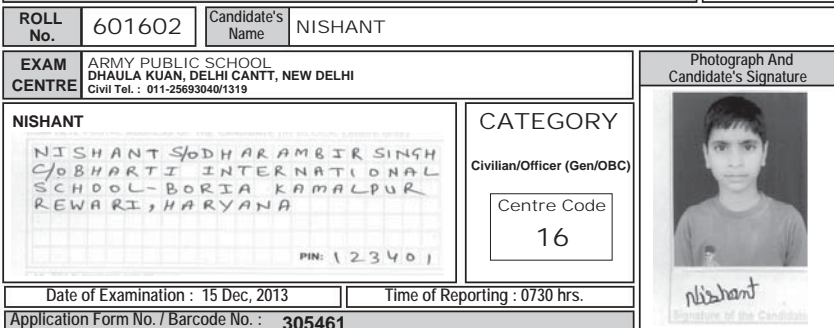 ROLL No. 601602 Candidate's Name NISHANT
EXAM CENTRE
ARMY PUBLIC SCHOOL
DHAULA KUAN, DELHI CANTT, NEW DELHI
Civil Tel. : 011-25693040/1319
Photograph And
Candidate's Signature
NISHANT
NISHANT S/O DHARAMBIR SINGH
C/O BHARTI INTERNATIONAL
SCHOOL-BORIA KAMALPUR
REWARI, HARYANA
PIN: 123401
CATEGORY
Civilian/Officer (Gen/OBC)
Centre Code
16
Nishant
Signature of the Candidate
Date of Examination : 15 Dec, 2013
Time of Reporting : 0730 hrs.
Application Form No. / Barcode No. : 305461